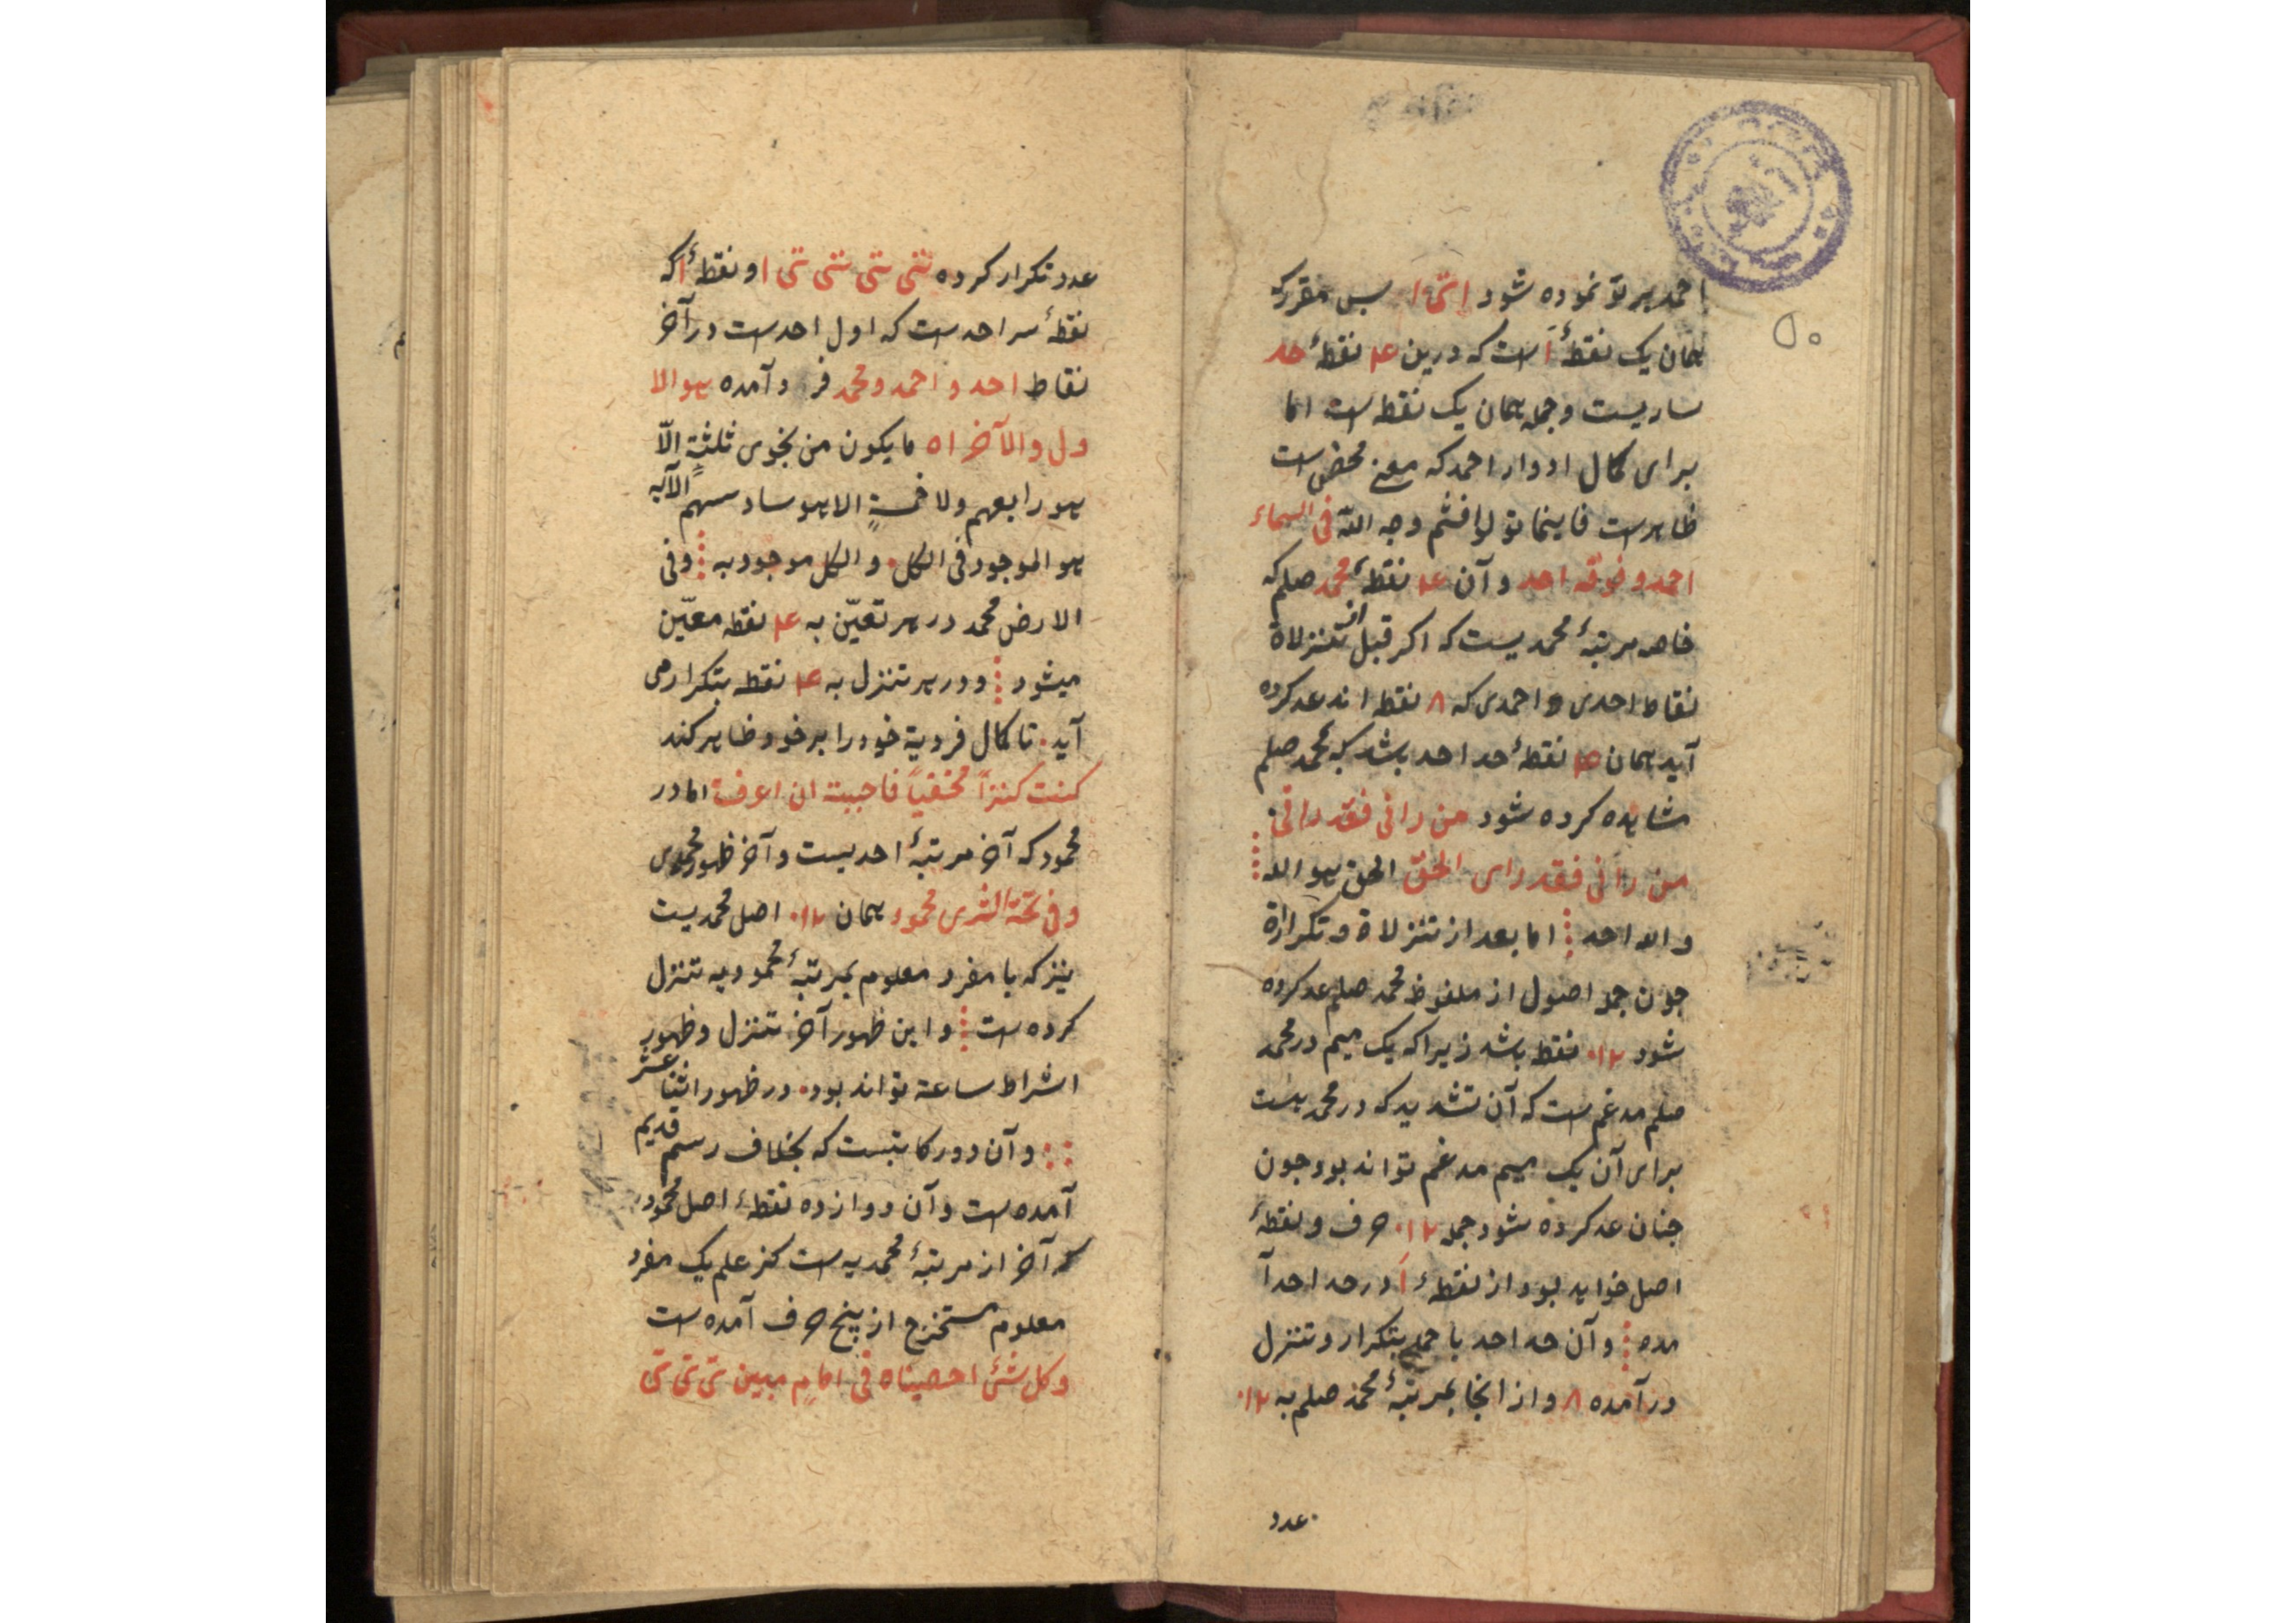 احمد بر تو نموده شود ا تی ا پس مقرر که
همان یک نقطهٔ آ است که درین ۴ نقطهٔ حد
ساریست و جمله همان یک نقطه است اما
برای کمال ادوار احمد که معنی محض است
ظاهرست فاینما تولوا فثم وجه اللّه فی السماء
احمد و فوقه احد و آن ۴ نقطهٔ محمد صلم که
خاصه مرتبهٔ محمدیست که اکر قبل از تنزلاة
نقاط احدی و احمدی که ۸ نقطه اند عد کرده
آید همان ۴ نقطهٔ حد احد باشد که محمد صلم
مشاهده کرده شود من رانی فقد رانی
من رانی فقد رای الحقّ الحق هو الله
و الله احد اما بعد از تنزلاة و تکراراة
جون جمله اصول از ملفوظ محمد صلم عد کرده
شود ۱۲ نقطه باشد زیرا که یک میم در محمد
صلم مدغم است که آن تشدید که در محمد یست
برای آن یک میم مدغم تواند بود جون
جنان عد کرده شود جمله ۱۲ حرف و نقطهٔ
اصل خواهد بود از نقطهٔ آ در حد احد آ
مده و آن حد احد با جمله بتکرار و تنزل
در آمده ۸ و از انجا بمرتبهٔ محمد صلم به ۱۲
عدد
۵۰
عدد تکرار کرده تنی تنی تنی تنی ا و نقطهٔ ا که
نقطهٔ سر احد ست که اول احد ست در آخر
نقاط احد و احمد و محمد فرو آمده هو الا
ول و الآخر اه ما یکون من نجوی ثلثةٍ الّا
هو رابعهم ولا خمسةٍ الا هو سادسهم الآیه
هو الموجود فی الکل و الکل موجود به و فی
الارض محمد در هر تعیّن به ۴ نقطه معیّن
میشود و در هر تنزل به ۴ نقطه بتکرار می
آید تا کمال فردیة خود را بر خود ظاهر کند
کنت کنزاً مخفیاً فاحببت ان اعرف اما در
محمود که آخر مرتبهٔ احدیست و آخر ظهور محمدی
و فی تحة الثری محمود همان ۱۲ اصل محمدیست
نیز که با مفرد معلوم بمرتبهٔ محمودیه تنزل
کرده است و این ظهور آخر تنزل و ظهور
اشراط ساعة تواند بود در ظهور اثنا عشر
و آن دور کا بتست که بخلاف رسم قدیم
آمده است و آن دوازده نقطهٔ اصل محمود
که آخر از مرتبهٔ محمدیه است کز علم یک مفرد
معلوم مستخرج از پنج حرف آمده است
و کل شئ احصیناه فی امامٍ مبین تی تی تی